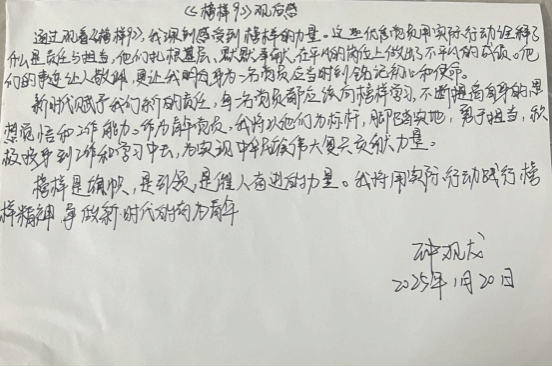 《榜样9》观后感
通过观看《榜样9》,我深刻感受到榜样的力量。这些优秀党员用实际行动诠释了
什么是责任与担当,他们扎根基层,默默奉献,在平凡的岗位上做出了不平凡的成绩。他
们的事迹让人敬佩,更让我明白身为一名党员应当时刻铭记初心和使命。
新时代赋予我们新的责任,每一名党员都应该向榜样学习,不断提高自身的思
想觉悟和工作能力。作为青年党员,我将以他们为标杆,脚踏实地,勇于担当,积
极投身到工作和学习中去,为实现中华民族伟大复兴贡献力量。
榜样是旗帜,是引领,是催人奋进的力量。我将用实际行动践行榜
样精神,争做新时代的有为青年
2025年1月20日